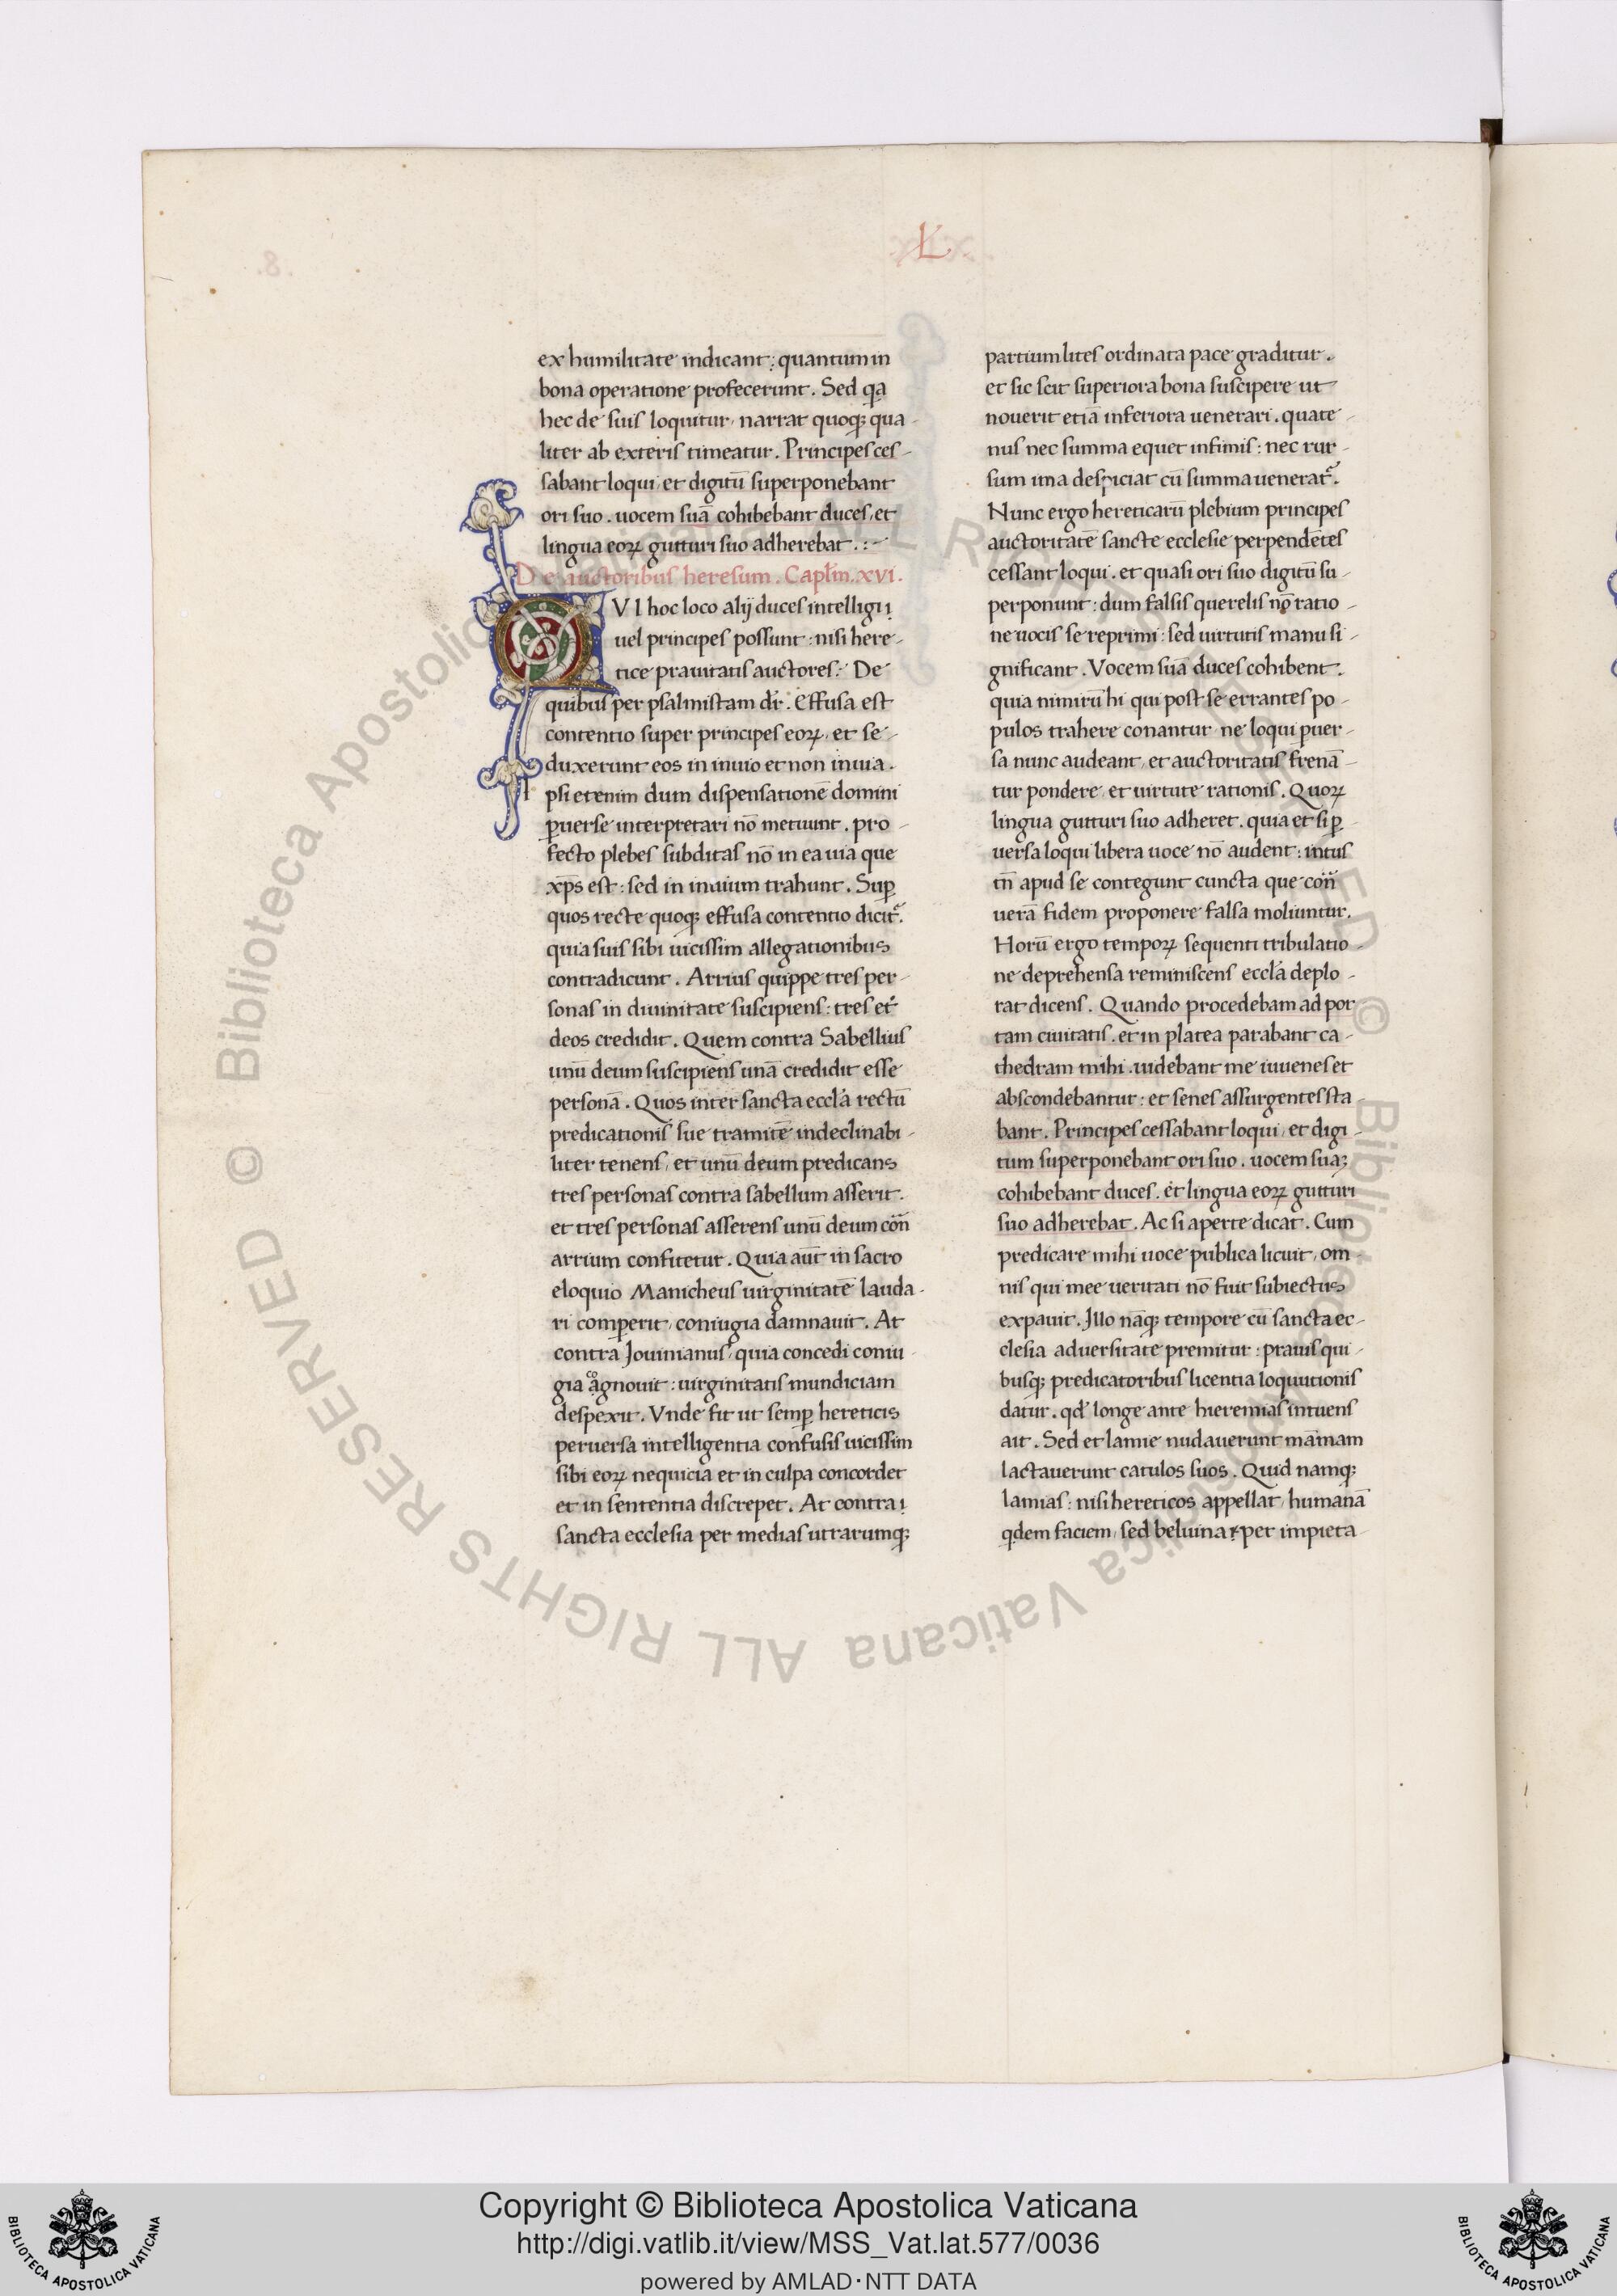 L
ex humilitate indicant : quantum in
bona operatione profecerunt . Sed qa
hec de suis loquitur, narrat quoqꝫ qua-
liter ab exteris timeatur . Principes ces-
sabant loqui, et digitū superponebant
ori suo . uocem suā cohibebant duces, et
lingua eoꝝ gutturi suo adherebat . :~
De auctoribus heresum . Capl̄m . xvi .
QVI hoc loco alij duces intelligi
uel principes possunt : nisi here-
tice prauitatis auctores : De
quibus per psalmistam dr̄ . Effusa est
contentio super principes eoꝝ, et se-
duxerunt eos in inuio et non in uia .
Ipsi etenim dum dispensationē domini
ꝑuerse interpretari nō metuunt . pro-
fecto plebes subditas nō in ea uia que
xp̄s est : sed in inuium trahunt . Suꝑ
quos recte quoqꝫ effusa contentio dicit᷑ .
quia suis sibi uicissim allegationibus
contradicunt . Arrius quippe tres per-
sonas in diuinitate suscipiens : tres et̄
deos credidit . Quem contra Sabellius
unū deum suscipiens unā credidit esse
personā . Quos inter sancta eccl̄a rectū
predicationis sue tramitē indeclinabi-
liter tenens, et unū deum predicans
tres personas contra sabellum asserit .
et tres personas asserens unū deum cōn
arrium confitetur . Quia aūt in sacro
eloquio Manicheus uirginitatē lauda-
ri comperit, coniugia damnauit . At
contra Jouinianus, quia concedi coniu-
gia cognouit : uirginitatis mundiciam
despexit . Vnde fit ut semꝑ hereticis
peruersa intelligentia confusis uicissim
sibi eoꝝ nequicia et in culpa concordet
et in sententia discrepet . At contra
sancta ecclesia per medias utrarumqꝫ
partium lites ordinata pace graditur .
et sic scit superiora bona suscipere ut
nouerit etiā inferiora uenerari . quate-
nus nec summa equet infimis : nec rur-
sum una despiciat cū summa uenerat᷑ .
Nunc ergo hereticarū plebium principes
auctoritatē sancte ecclesie perpendētes
cessant loqui . et quasi ori suo digitū su-
perponunt : dum falsis querelis nō ratio-
ne uocis se reprimi : sed uirtutis manu si-
gnificant . Vocem suā duces cohibent .
quia nimirū hi qui post se errantes po-
pulos trahere conantur, ne loqui ꝑuer-
sa nunc audeant, et auctoritatis frenā-
tur pondere, et uirtute rationis . Quoꝝ
lingua gutturi suo adheret . quia et si ꝑ
uersa loqui libera uoce nō audent : intus
tn̄ apud se contegunt cuncta que cōn
uerā fidem proponere falsa moliuntur .
Horū ergo tempoꝝ sequenti tribulatio-
ne deprehensa reminiscens eccl̄a deplo-
rat dicens . Quando procedebam ad por
tam ciuitatis . et in platea parabant ca-
thedram mihi . uidebant me iuuenes et
abscondebantur : et senes assurgentes sta-
bant . Principes cessabant loqui, et digi-
tum superponebant ori suo . uocem suaꝫ
cohibebant duces . et lingua eoꝝ gutturi
suo adherebat . Ac si aperte dicat . Cum
predicare mihi uoce publica licuit, om-
nis qui mee ueritati nō fuit subiectus
expauit . Illo nāqꝫ tempore cū sancta ec-
clesia aduersitate premitur : prauis qui-
busqꝫ predicatoribus licentia loquutionis
datur . qd̄ longe ante hieremias intuens
ait . Sed et lamie nudauerunt māmam
lactauerunt catulos suos . Quid namqꝫ
lamias : nisi hereticos appellat, humanā
qdem faciem, sed beluina per impieta-
© Biblioteca Apostolica Vaticana ALL RIGHTS RESERVED © Biblioteca Apostolica Vaticana ALL RIGHTS RESERVED
Copyright © Biblioteca Apostolica Vaticana
http://digi.vatlib.it/view/MSS_Vat.lat.577/0036
powered by AMLAD·NTT DATA
BIBLIOTECA APOSTOLICA VATICANA
BIBLIOTECA APOSTOLICA VATICANA